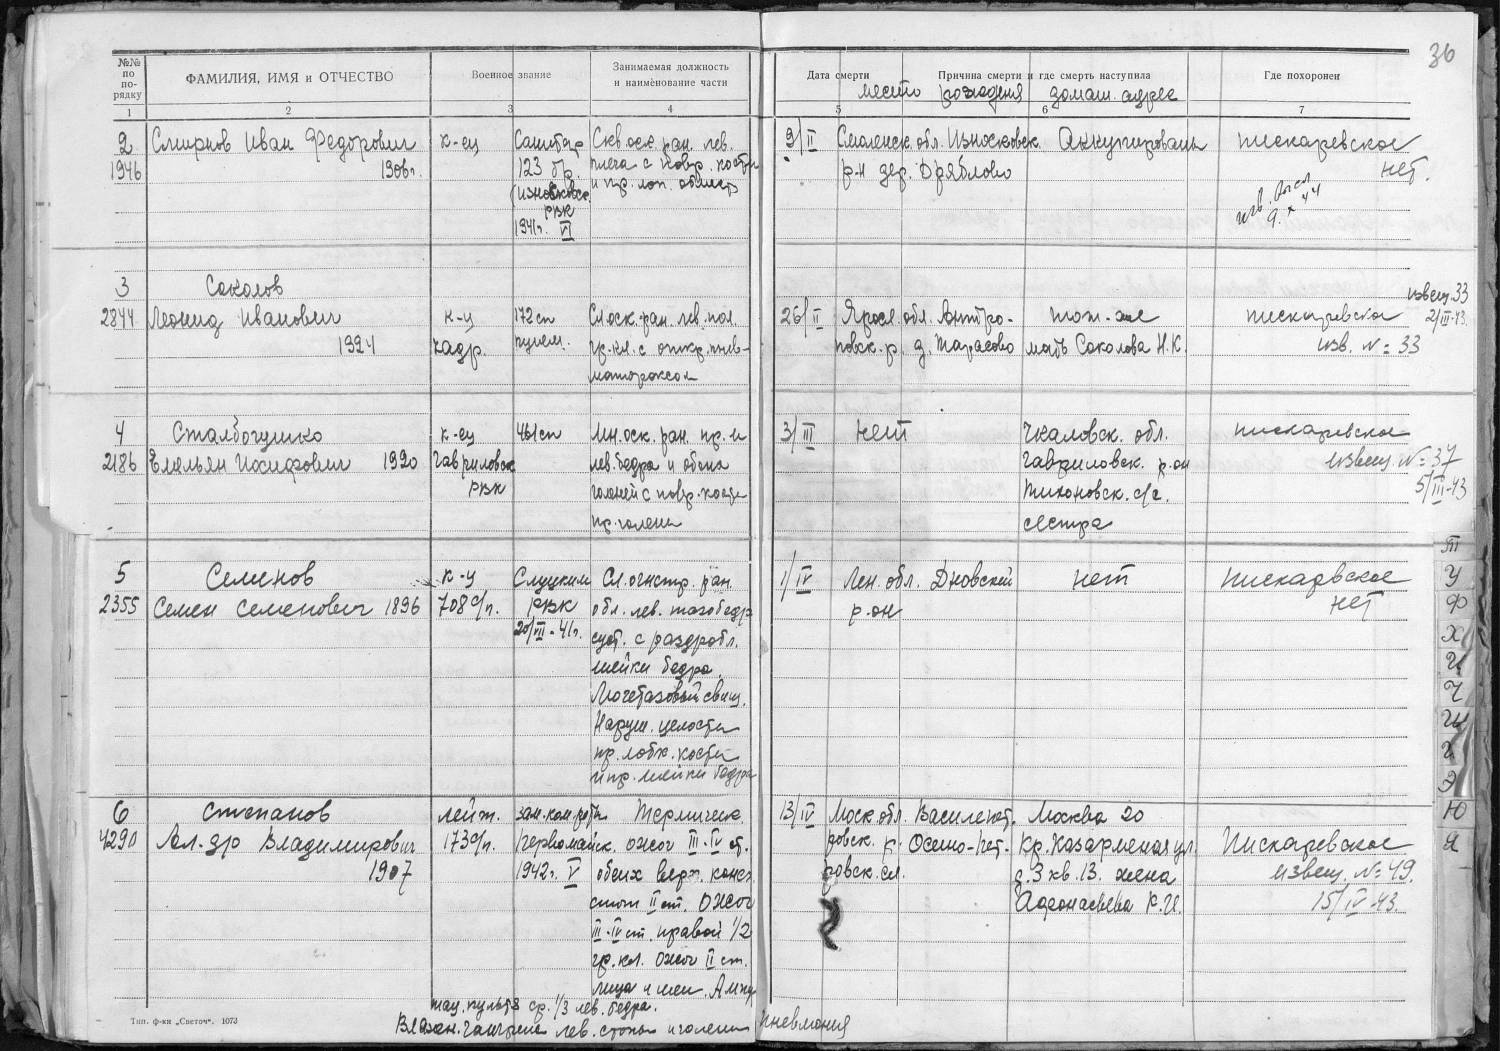 36
№№ по по-рядку
ФАМИЛИЯ, ИМЯ и ОТЧЕСТВО
Военное звание
Занимаемая должность и наименование части
Дата смерти
Причина смерти и где смерть наступила
Где похоронен
место рождения домаш. адрес
1 2 3 4 5 6 7
2 Смирнов Иван Федорович к-ец Санитар Скв. оск. ран. лев. 9/II Смоленск. обл. Износковск. Оккупирован пискаревское
1946 1906г. 123 бр. плеча с повр. кости р-н дер. Дряблово нет.
(Износковск. и пр. лоп. област
РВК
1941г. VI 9.X 44
3 Соколов извещ. 33
2844 Леонид Иванович к-ц 172 сп Сл. оск. ран. лев. пол. 26/II Яросл. обл. Антро- том-же пискаревское 2/III-43.
1924 кадр. пулем. гр. кл. с откр. пнев- повск. р. д. Тарасово мать Соколова Н.К. изв. № 33
матораксом
4 Сталбогушко к-ец 461 сп Мн. оск. ран. пр. и 3/III нет Чкаловск. обл. пискаревское
2186 Емельян Иосифович 1920 Гавриловск лев. бедра и обеих Гавриловск. р-он извещ. № 37
РВК голеней с повр. кости Тихоновск. с/с. 5/III-43
пр. голени сестра
5 Семенов к-ц Слуцким Сл. огнстр. ран. 1/IV Лен. обл. Дновский нет Пискаревское
2355 Семен Семенович 1896 708 с/п. РВК обл. лев. тазобедр р-он нет
20/VII-41г. суст. с раздробл.
шейки бедра.
Мочетазовый свищ.
Наруш. целости
пр. лобк. кости
и пр. шейки бедра
6 Степанов лейт. зам. ком. роты Термическ. 13/IV Моск. обл. Василь Москва 20
4290 Ал-др Владимирович 173 с/п. Первомайск. ожог III-IV ст. ровск. р. Осино-Пет. Кр. Казарменная ул. Пискаревское
1907 1942г. V обеих верх. конеч ровск. сл. д. 3 кв. 13. жена извещ. № 49.
стот II ст. Ожог Афонасьева К.И. 15/IV-43.
III-IV ст. правой 1/2
гр. кл. Ожог II ст.
лица и шеи. Ампу
тац. культ ср. 1/3 лев. бедра.
Влажн. гангрена лев. стопы и голени Пневмония
Т
У
Ф
Х
Ц
Ч
Щ
Э
Ю
Я
Тип. ф-ки „Светоч“. 1073